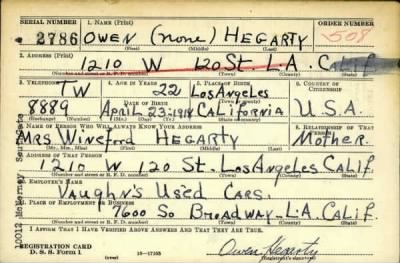 SERIAL NUMBER 1. NAME (Print) ORDER NUMBER
2786 OWEN (none) HEGARTY 508
(First) (Middle) (Last)
2. ADDRESS (Print)
1210 W 120 St L.A. CALIF
(Number and street or R. F. D. number) (Town) (County) (State)
3. TELEPHONE 4. AGE IN YEARS 5. PLACE OF BIRTH 6. COUNTRY OF CITIZENSHIP
TW 22 Los Angeles
DATE OF BIRTH (Town or county)
8889 APRIL 23-1918 CALIFORNIA U.S.A.
(Exchange) (Number) (Mo.) (Day) (Yr.) (State or country)
7. NAME OF PERSON WHO WILL ALWAYS KNOW YOUR ADDRESS 8. RELATIONSHIP OF THAT PERSON
MRS WINEFORD HEGARTY MOTHER.
(Mr., Mrs., Miss) (First) (Middle) (Last)
9. ADDRESS OF THAT PERSON
1210 W 120 St. Los Angeles CALIF.
(Number and street or R. F. D. number) (Town) (County) (State)
10. EMPLOYER'S NAME
VAUGHN'S USED CARS.
11. PLACE OF EMPLOYMENT OR BUSINESS
7600 So BROADWAY - L.A. CALIF.
(Number and street or R. F. D. number) (Town) (County) (State)
I AFFIRM THAT I HAVE VERIFIED ABOVE ANSWERS AND THAT THEY ARE TRUE.
REGISTRATION CARD
D. S. S. FORM 1 (over) 16-17105 Owen Hegarty
(Registrant's signature)